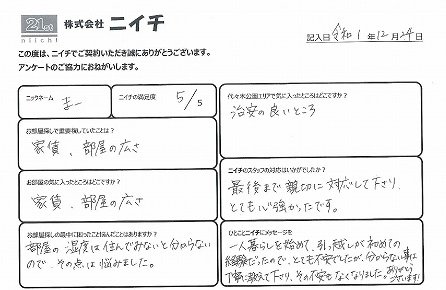 21st
niichi
株式会社 ニイチ
記入日 令和1年12月29日
この度は、ニイチでご契約いただき誠にありがとうございます。
アンケートのご協力におねがいします。
ニックネーム まー
ニイチの満足度 5/5
お部屋探しで重要視していたことは?
家賃、部屋の広さ
お部屋の気に入ったところはどこですか?
家賃、部屋の広さ
お部屋探しの最中に困ったこと悩んだことはありますか?
部屋の湿度は住んでみないと分からない
ので、その点は悩みました。
代々木公園エリアで気に入ったところはどこですか?
治安の良いところ
ニイチのスタッフの対応はいかがでしたか?
最後まで親切に対応して下さり、
とても心強かったです。
ひとことニイチにメッセージを
一人暮らしを始めて、引っ越しが初めての
経験だったので、とても不安でしたが、分からない事は
丁寧に教えて下さり、その不安もなくなりました。ありがとう
ございます!